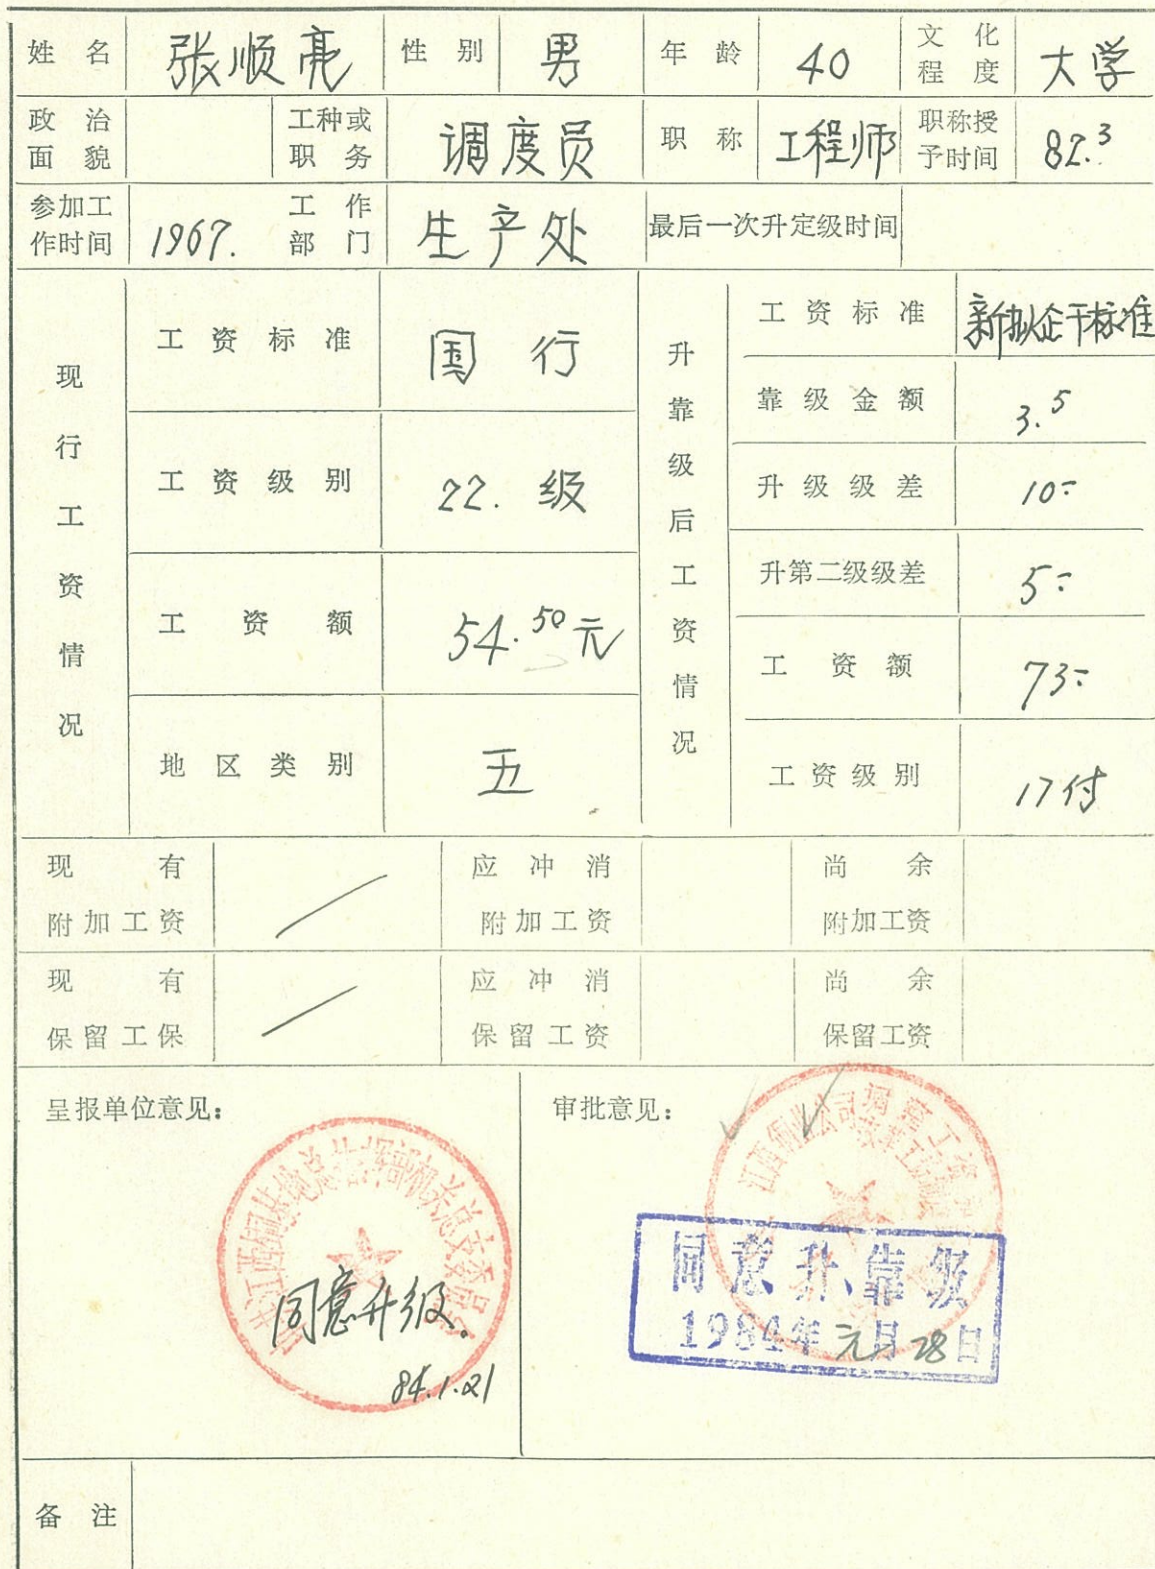 姓 名 张顺亮 性 别 男 年 龄 40 文 化 程 度 大学
政 治 面 貌 工种或 职 务 调度员 职 称 工程师 职称授 予时间 82.3
参加工 作时间 1967. 工 作 部 门 生产处 最后一次升定级时间
现行工资情况
工 资 标 准 国 行
工 资 级 别 22. 级
工 资 额 54.50元
地 区 类 别 五
升靠级后工资情况
工 资 标 准 新拟企干标准
靠 级 金 额 3.5
升 级 级 差 10-
升第二级级差 5-
工 资 额 73-
工 资 级 别 17付
现 有 附加工资 应 冲 消 附加工资 尚 余 附加工资
现 有 保留工保 应 冲 消 保留工资 尚 余 保留工资
呈报单位意见：
江西铜基地总指挥部机关总支委员
同意升级.
84.1.21
审批意见：
江西铜业公司调整工资
同意升、靠级
1984年元月28日
备 注